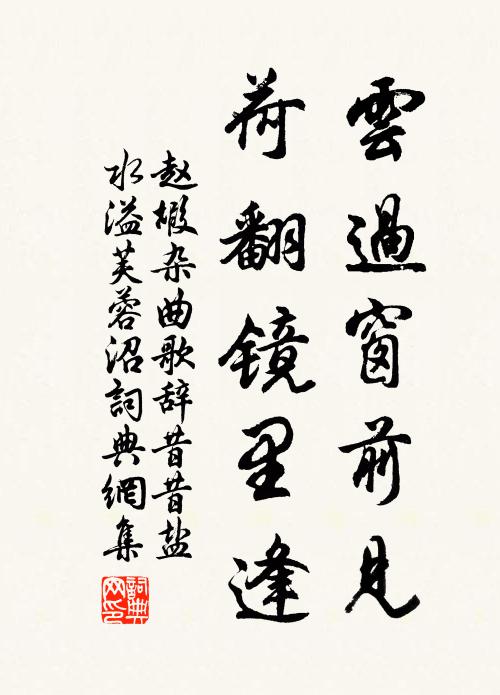 雲過窗前見
荷翻镜里逢
赵嘏杂曲歌辞昔昔盐
水溢芙蓉沼詞典網集
詞典
网印